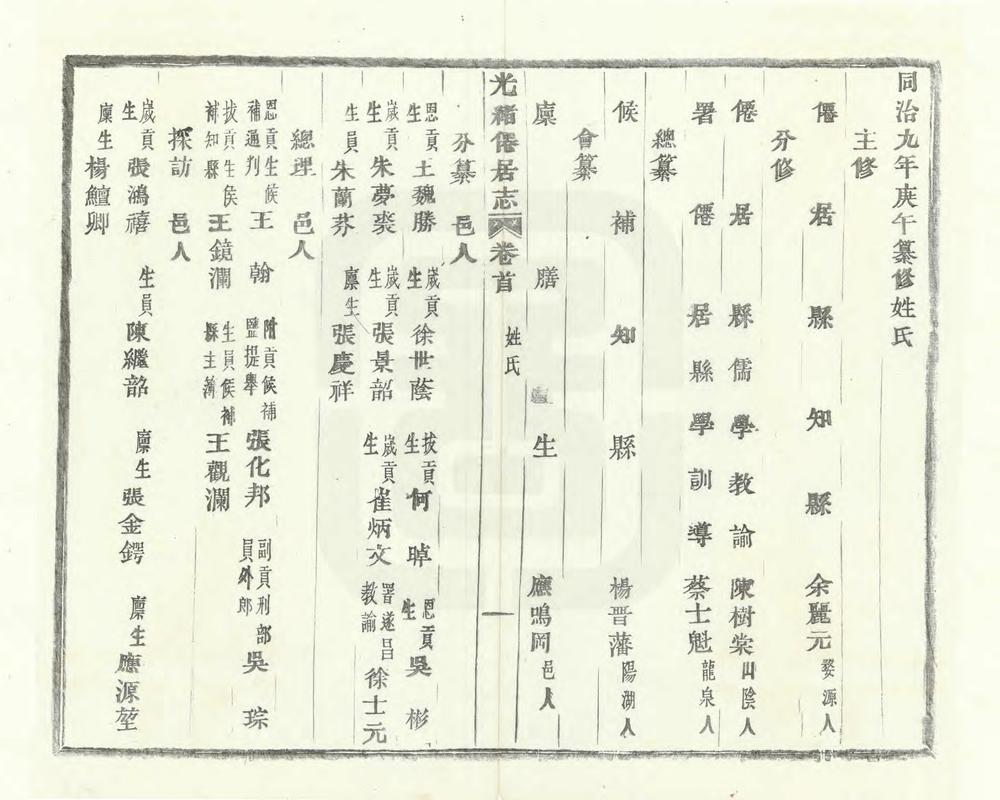 同治九年庚午纂修姓氏
主修
僊居縣知縣余麗元婺源人
分修
僊居縣儒學教諭陳樹棠山陰人
署僊居縣學訓導蔡士魁龍泉人
總纂
候補知縣楊晋藩陽湖人
會纂
廩膳生應鳴岡邑人
光緒僊居志 卷首 姓氏 一
分纂 邑人
恩貢生王魏勝 歲貢生徐世蔭 拔貢生何焯 恩貢生吳彬
歲貢生朱夢裘 歲貢生張景韶 歲貢生崔炳文 署遂昌教諭徐士元
生員朱蘭芬 廩生張慶祥
總理 邑人
恩貢生候補通判王翰 附貢候補鹽提舉張化邦 副貢刑部員外郎吳琮
拔貢生候補知縣王鏡瀾 生員候補縣主簿王觀瀾
採訪 邑人
歲貢生張鴻禧 生員陳繼韶 廩生張金鍔 廩生應源堃
廩生楊鱣卿